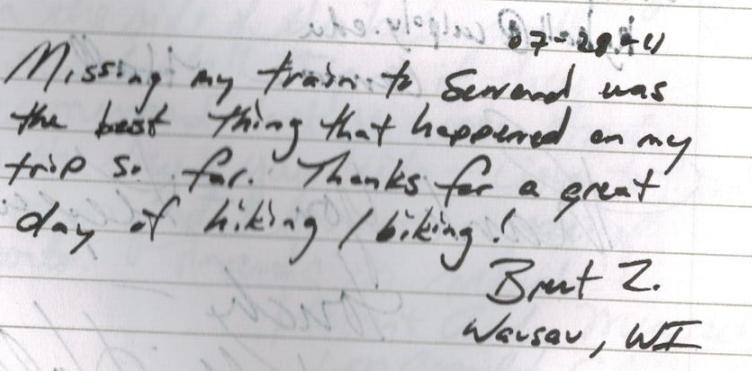 07-28-11
Missing my train to Seward was
the best thing that happened on my
trip so far. Thanks for a great
day of hiking / biking!
Brent Z.
Wausau, WI